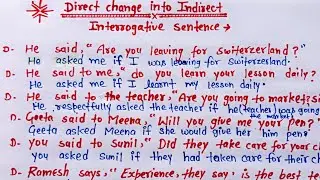 Direct change into Indirect
Interrogative sentence →
D- He said, "Are you leaving for Switerzerland?"
He asked me if I was leaving for Switzerland.
D- He said to me, "do you learn your lesson daily?
He asked me if I learnt my lesson daily.
D- He said to the teacher, "Are you going to market, si
He respectfully asked the teacher if he (teacher) was going
the market
D- Geeta said to Meena, "Will you give me your pen?
Geeta asked Meena if she would give her him pen
D- you said to Sunil, "Did they take care for your c
you asked Sunil if they had taken care for their ch
D- Ramesh says, "Experience, they say, is the best te